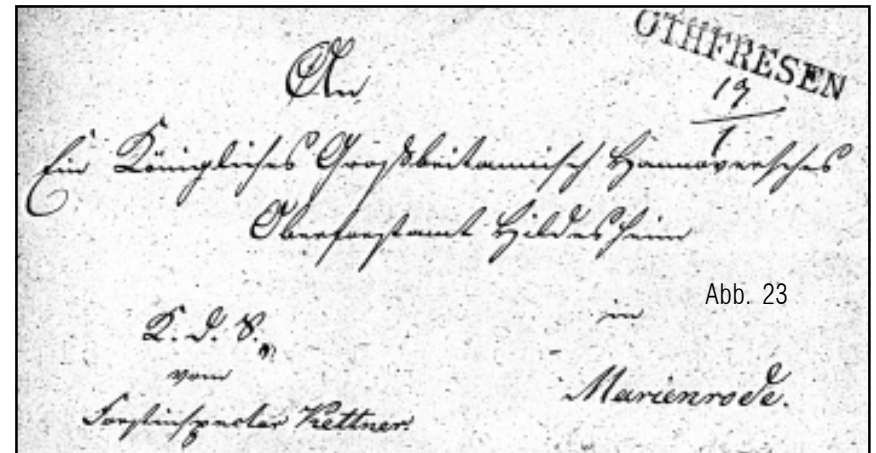 OTHFRESEN
19/1
An
Ein Königliches Großbritannisch Hannoversches
Oberforstamt Hildesheim
Abb. 23
in
Marienrode.
K. d. S.
vom
Forstinspector Kettner.